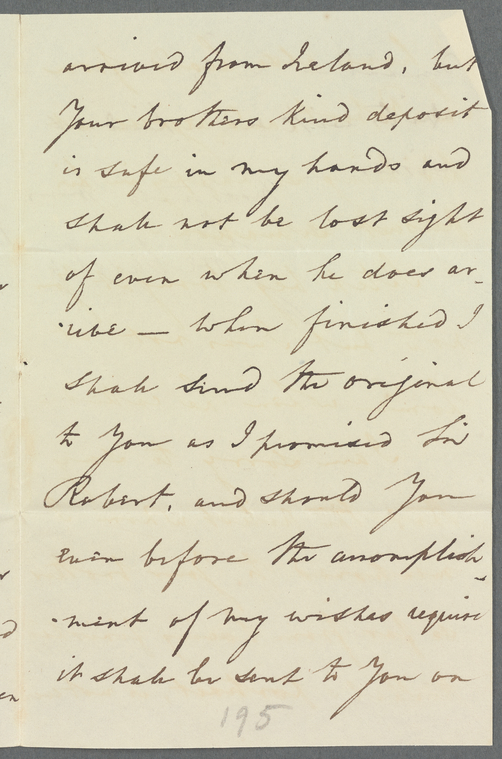 arrived from Ireland, but
Your brothers kind deposit
is safe in my hands and
shall not be lost sight
of even when he does ar-
-rive — When finished I
shall send the original
to You as I promised Sir
Robert, and should You
even before the accomplish-
-ment of my wishes require
it shall be sent to You on
195